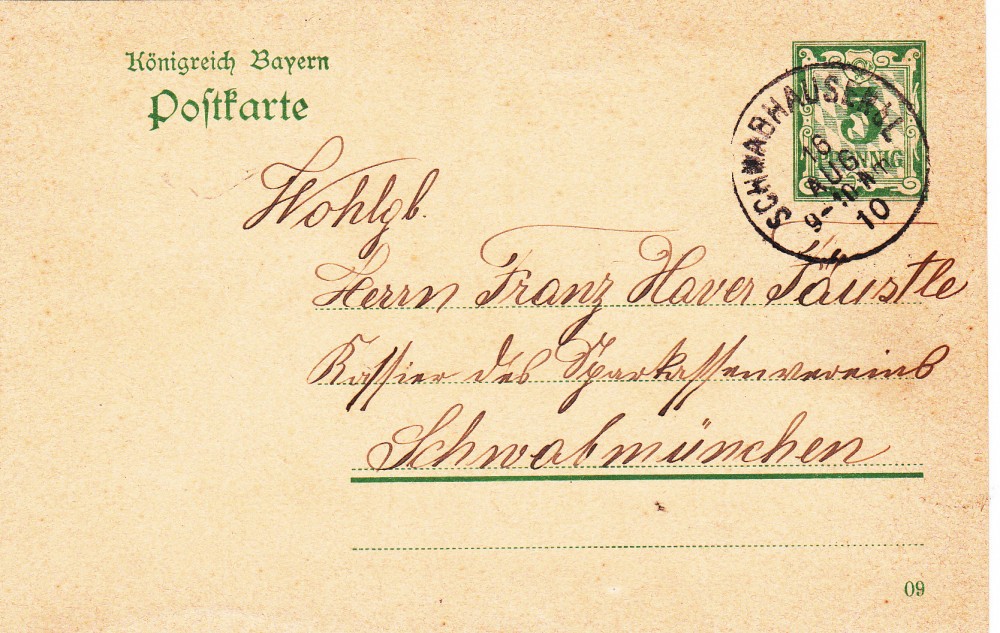 Königreich Bayern
Postkarte
5
PFENNIG
SCHWABHAUSEN
16
AUG
9-10
10
Wohlgb.
Herrn Franz Xaver Fäustle
Kassier des Sparkassenvereins
Schwabmünchen
09